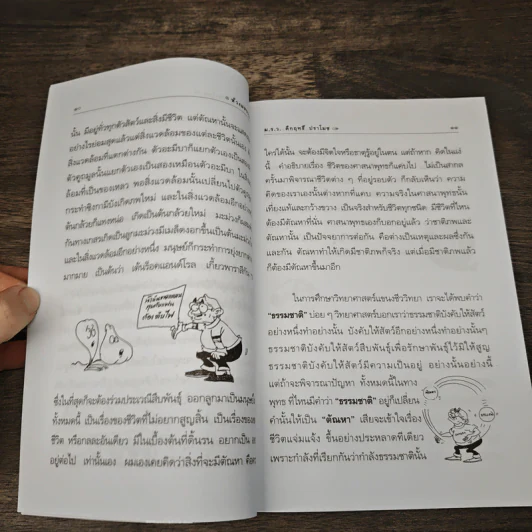 นั้น มีอยู่ทั่วทุกตัวสัตว์และสิ่งมีชีวิต แต่ตัณหานั้นจะแสดง
อย่างไรย่อมสุดแล้วแต่สิ่งแวดล้อมของแต่ละชีวิตนั้น
สิ่งแวดล้อมที่แตกต่างกัน ตัวอะมีบาก็แยกตัวเองเป็นสอง
ตัวถูกผูกนั้นแยกตัวเองเป็นสองเหมือนตัวอะมีบา
ล้อมที่เป็นของเหลว พอสิ่งแวดล้อมนั้นเปลี่ยนไป
กระทำชิงกามียังเกิดเทพใหม่ และในสิ่งแวดล้อมอีกอย่าง
ต้นกล้วยก็แทงหน่อ เกิดเป็นต้นกล้วยใหม่
กันทางเกสรเกิดเป็นลูกมะม่วงมีเมล็ดงอกขึ้นเป็นต้นมะม่วง
และในสิ่งแวดล้อมอีกอย่างหนึ่ง มนุษย์ก็กระทำการยุ่งยาก
มากมาย เป็นต้นว่า เต้นร็อคแอนด์โรล เกี้ยวพาราสีกัน
ซึ่งในที่สุดก็จะต้องร่วมประเวณีสืบพันธุ์ ออกลูกมาเป็นมนุษย์
ทั้งหมดนี้ เป็นเรื่องของชีวิตที่ไม่อยากสูญสิ้น เป็นเรื่องของ
ชีวิต หรือกลละอันเดียว มีในเบื้องต้นที่ดั้นรน อยากเป็น
อยู่ต่อไป เท่านั้นเอง ผมเองเคยคิดว่าสิ่งที่จะมีตัณหา คือ
ม.ร.ว. คึกฤทธิ์ ปราโมช
ใคร่ได้นั้น จะต้องมีจิตใจหรือธาตุรู้อยู่ในตน แต่ถ้าหาก คิดในแง่
นี้ คำอธิบายเรื่อง ชีวิตของศาสนาพุทธก็แคบไป ไม่เป็นสากล
ครั้นมาพิจารณาชีวิตต่าง ๆ ที่อยู่รอบตัว ก็กลับเห็นว่า ความ
คิดของเราเองนั้นต่างหากที่แคบ ความจริงในศาสนาพุทธนั้น
เที่ยงแท้และกว้างขวาง เป็นจริงสำหรับชีวิตทุกชนิด มีชีวิตที่ไหน
ต้องมีตัณหาที่นั่น ศาสนาพุทธเองก็บอกอยู่แล้ว ว่าชาติภพและ
ตัณหานั้น เป็นปัจจยาการต่อกัน คือต่างเป็นเหตุและผลซึ่งกัน
และกัน ตัณหาทำให้เกิดมีชาติภพก็จริง แต่เมื่อมีชาติภพแล้ว
ก็ต้องมีตัณหาขึ้นมาอีก
ในการศึกษาวิทยาศาสตร์แขนงชีววิทยา เราจะได้พบคำว่า
"ธรรมชาติ" บ่อย ๆ วิทยาศาสตร์บอกเราว่าธรรมชาติบังคับให้สัตว์
อย่างหนึ่งทำอย่างนั้น บังคับให้สัตว์อีกอย่างหนึ่งทำอย่างนั้นๆ
ธรรมชาติบังคับให้สัตว์สืบพันธุ์เพื่อรักษาพันธุ์ไว้มิให้สูญ
ธรรมชาติบังคับให้สัตว์มีความเป็นอยู่ อย่างนั้นอย่างนี้
แต่ถ้าจะพิจารณาปัญหา ทั้งหมดนี้ในทาง
พุทธ ที่ไหนมีคำว่า "ธรรมชาติ" อยู่ก็เปลี่ยน
คำนั้นให้เป็น "ตัณหา" เสียจะเข้าใจเรื่อง
ชีวิตแจ่มแจ้ง ขึ้นอย่างประหลาดทีเดียว
เพราะกำลังที่เรียกกันว่ากำลังธรรมชาตินั้น